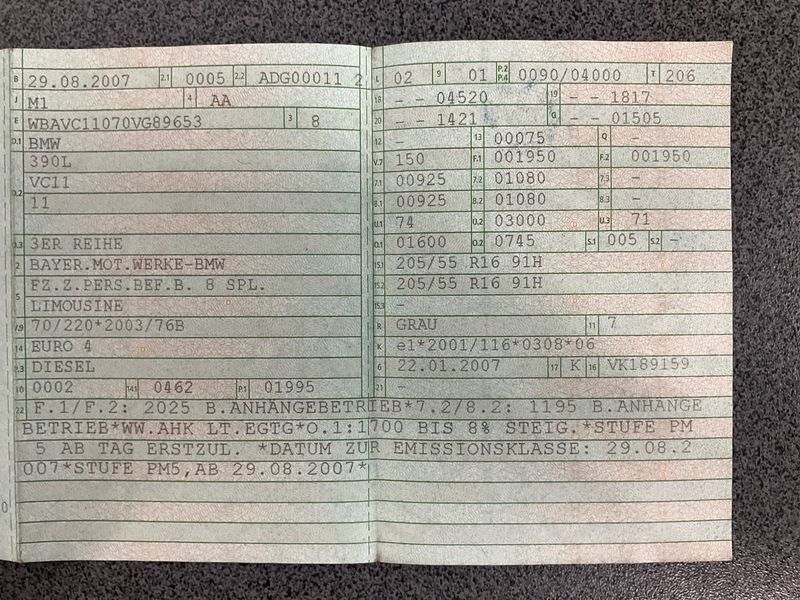 B 29.08.2007 2.1 0005 2.2 ADG00011 2
J M1 4 AA
E WBAVC11070VG89653 3 8
D.1 BMW
390L
D.2 VC11
11
D.3 3ER REIHE
2 BAYER.MOT.WERKE-BMW
5 FZ.Z.PERS.BEF.B. 8 SPL.
LIMOUSINE
V.9 70/220*2003/76B
14 EURO 4
P.3 DIESEL
10 0002 14.1 0462 P.1 01995
L 02 9 01 P.2 P.4 0090/04000 T 206
18 - - 04520 19 - - 1817
20 - - 1421 G - - 01505
12 - 13 00075 Q -
V.7 150 F.1 001950 F.2 001950
7.1 00925 7.2 01080 7.3 -
8.1 00925 8.2 01080 8.3 -
U.1 74 U.2 03000 U.3 71
O.1 01600 O.2 0745 S.1 005 S.2 -
15.1 205/55 R16 91H
15.2 205/55 R16 91H
15.3 -
R GRAU 11 7
K e1*2001/116*0308*06
6 22.01.2007 17 K 16 VK189159
21 -
22 F.1/F.2: 2025 B.ANHÄNGEBETRIEB*7.2/8.2: 1195 B.ANHÄNGE
BETRIEB*WW.AHK LT.EGTG*O.1:1700 BIS 8% STEIG.*STUFE PM
5 AB TAG ERSTZUL. *DATUM ZUR EMISSIONSKLASSE: 29.08.2
007*STUFE PM5,AB 29.08.2007*